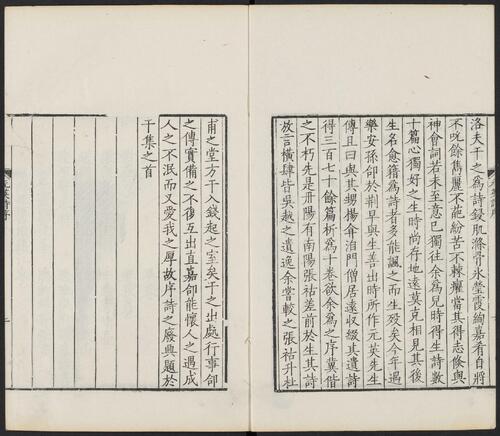 洛夫干之為詩鋟肌滌骨氷瑩霞絢嘉肴自將
不吮餘雋麗不葩紛苦不棘癯當其得志倏與
神會詞若未至意已獨往余為兒時得生詩數
十篇心獨好之生時尚存地遠莫克相見其後
生名愈籍為詩者多能諷之而生歿矣今年遇
樂安孫郃於荊早與生善出時所作元英先生
傳且曰與其甥楊弇洎門僧居遠收綴其遺詩
得三百七十餘篇析為十卷欲余為之序冀偕
之不朽先是丹陽有南陽張祜差前於生其詩
故言橫肆皆吳越之遺逸余嘗較之張祜升杜
甫之堂方干入錢起之室矣干之出處行事郃
之傳實備之不復互出直嘉郃能懷人之遇成
人之不泯而又愛我之厚故序詩之廢典題於
干集之首